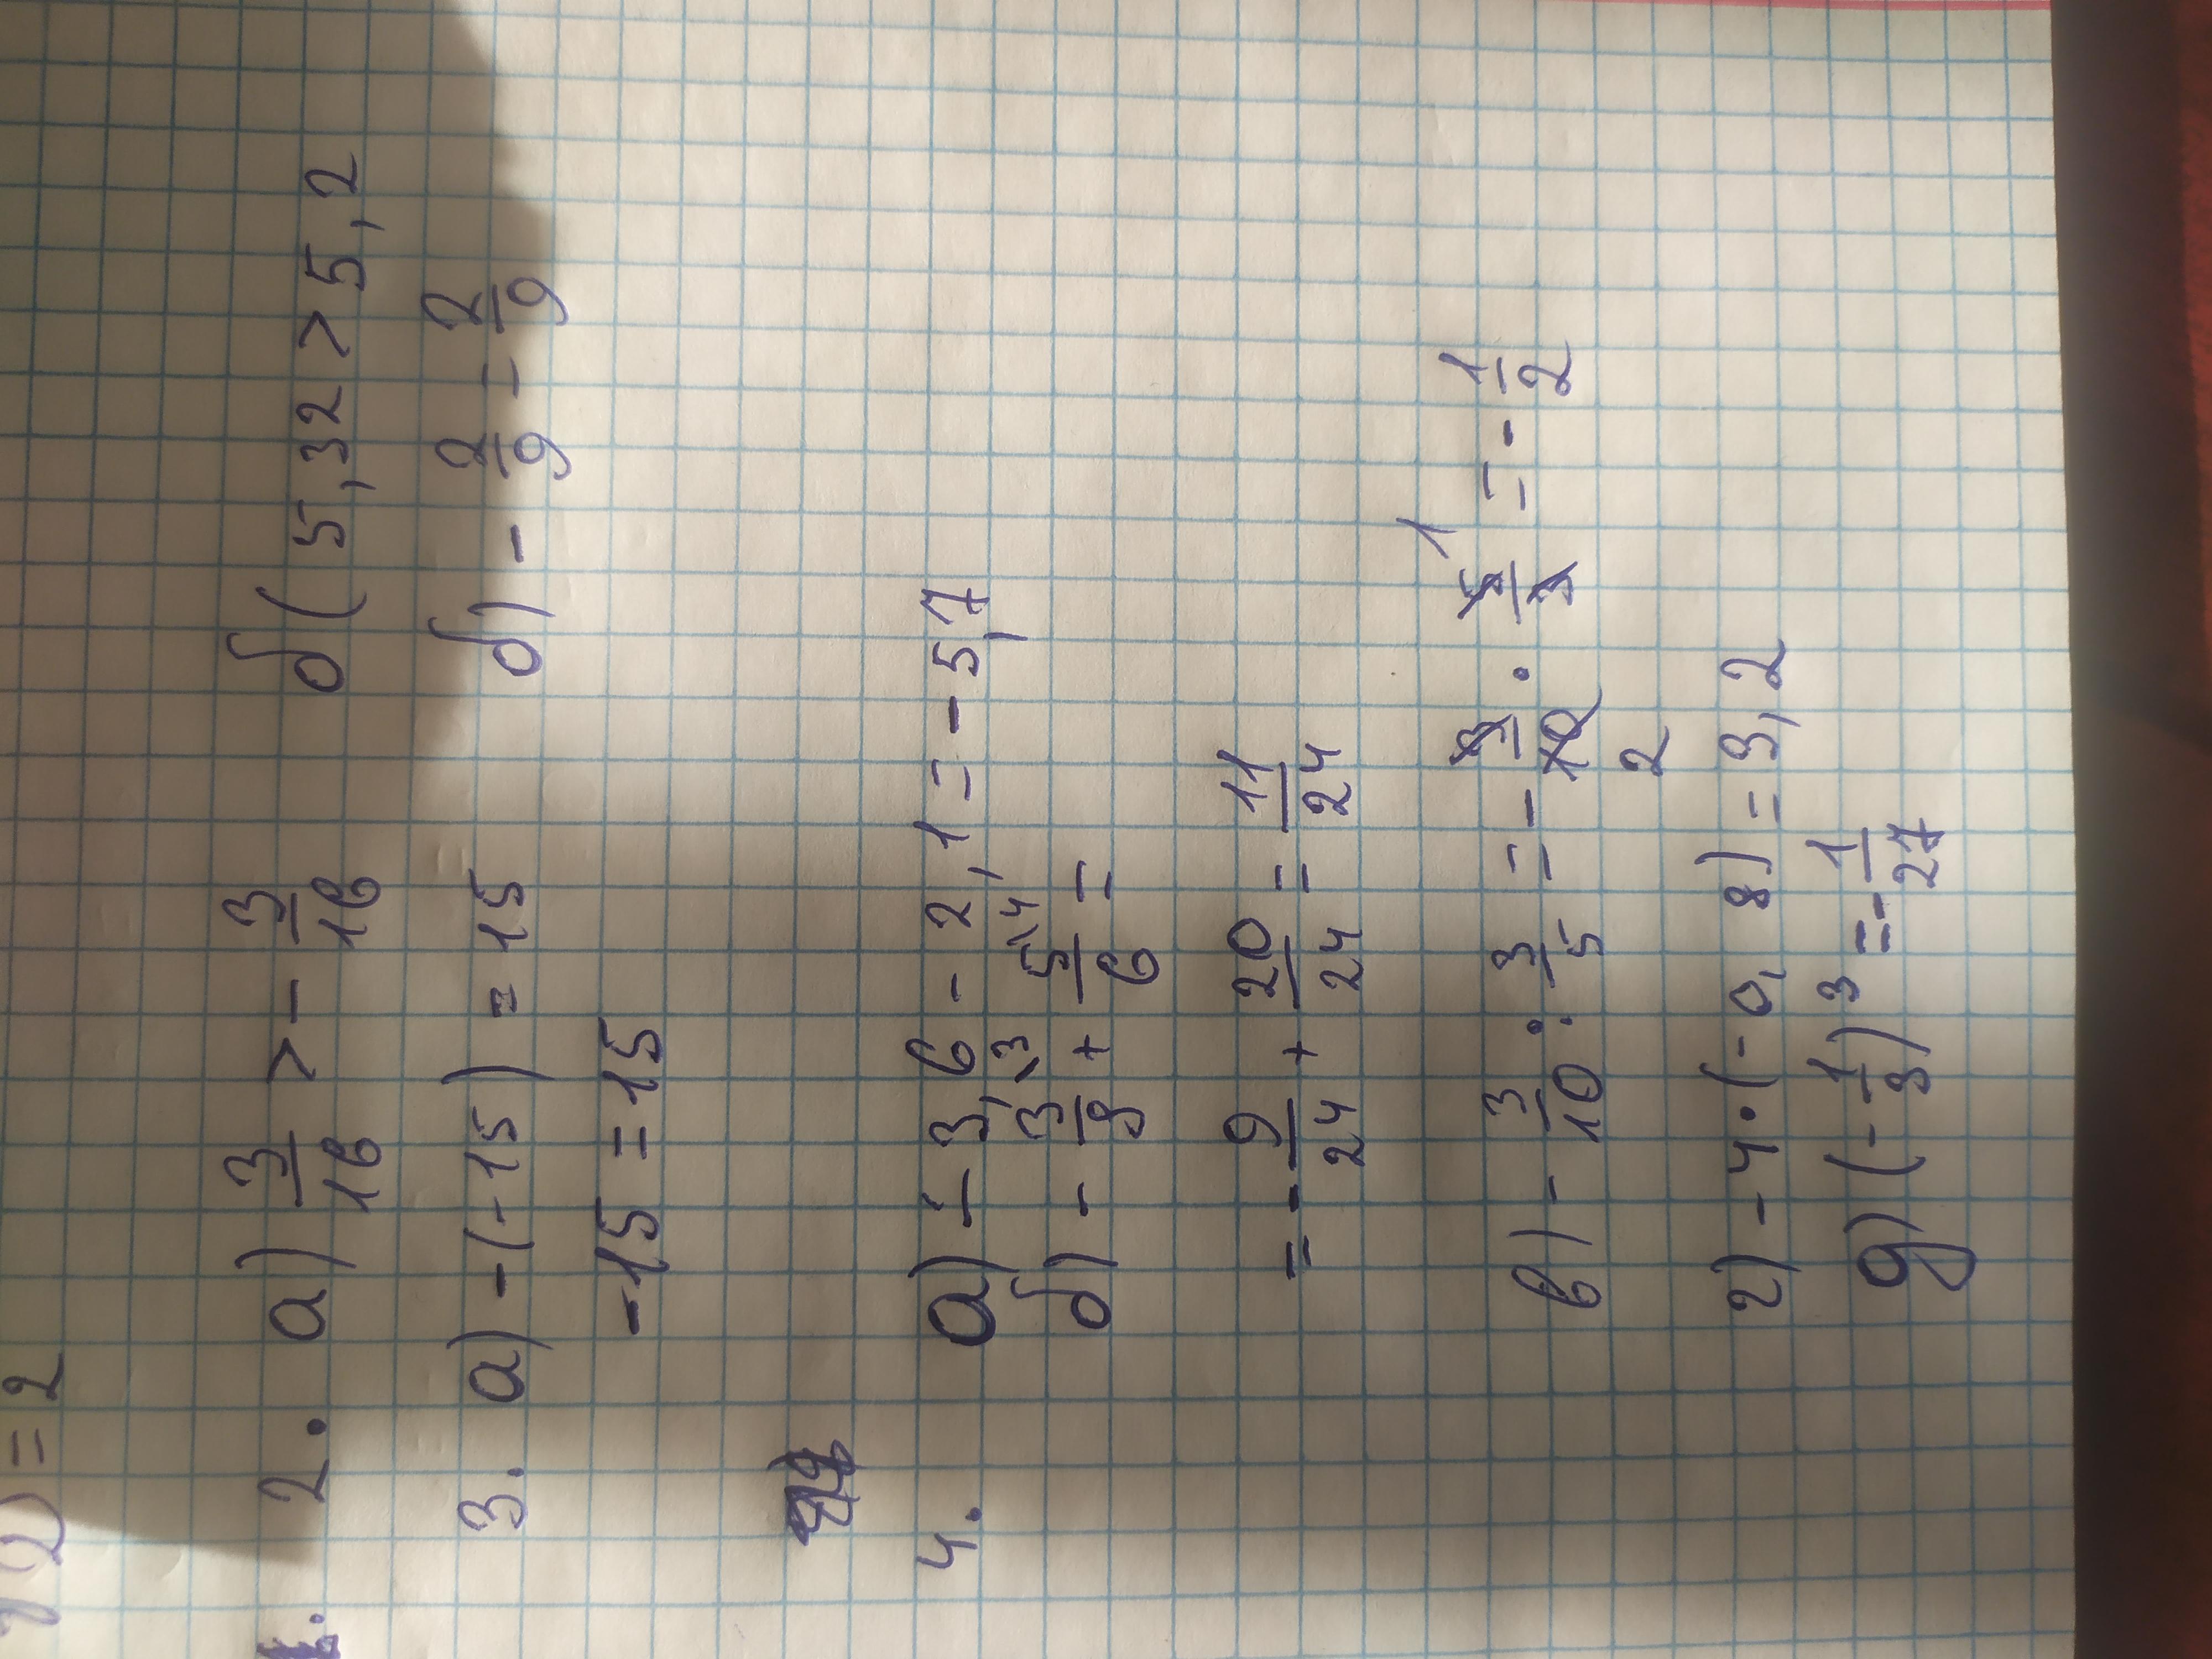 12) = 2
2. а) 3/16 > - 3/16 б( 5,32 > 5,2
3. а) - (-15) = 15 б) - 2/9 = 2/9
-15 = 15
4. а) - 3,6 - 2,1 = - 5,7
б) - 3/8\3 + 5/6\4 =
= - 9/24 + 20/24 = 11/24
в) - 3/10 : 3/5 = - 3/10 2 · 5/3 1 = - 1/2
г) - 4 · (- 0,8) = 3,2
д) (- 1/3)³ = - 1/27